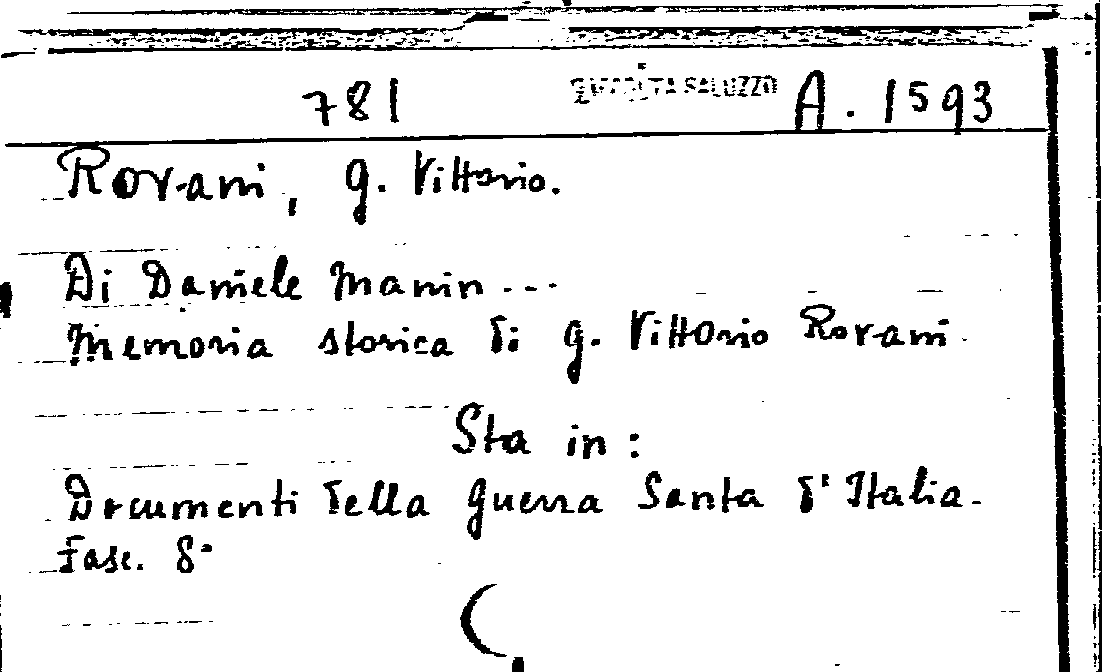 781 SALUZZO A. 1593
Rovani, G. Vittorio.
Di Daniele Manin ...
Memoria storica di G. Vittorio Rovani.
Sta in:
Documenti della Guerra Santa d'Italia.
Fasc. 8°